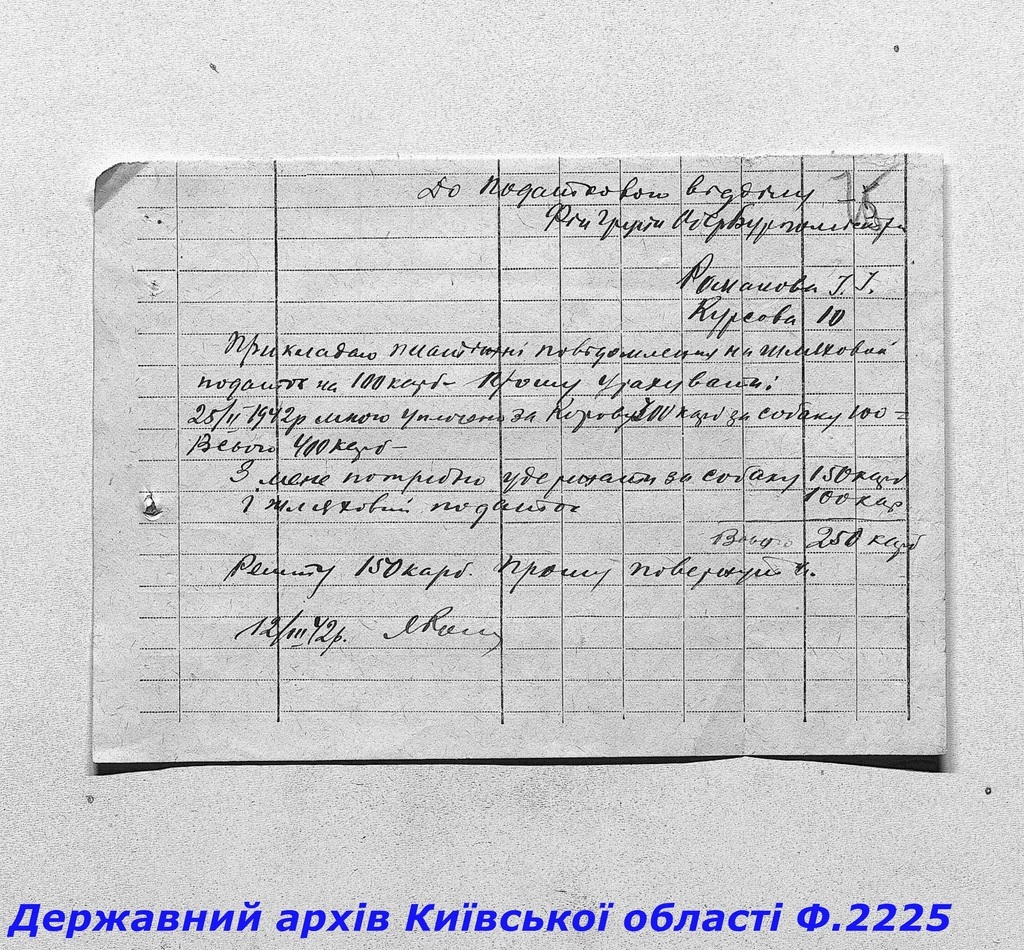 До податкового відділу
Фін групи Обербургомістра
76
Романова І. І.
Курсова 10
Прикладаю платіжні повідомлення на шляховий
податок на 100 карб– Прошу урахувати:
25/II 1942р мною уплочено за Корову 300 карб за собаку 100 =
Всього 400 карб–
З мене потрібно удержати за собаку 150 карб
і шляховий податок 100 кар
Всього 250 карб
Решту 150 карб. Прошу повернути.
12/III 42р.
Державний архів Київської області Ф.2225